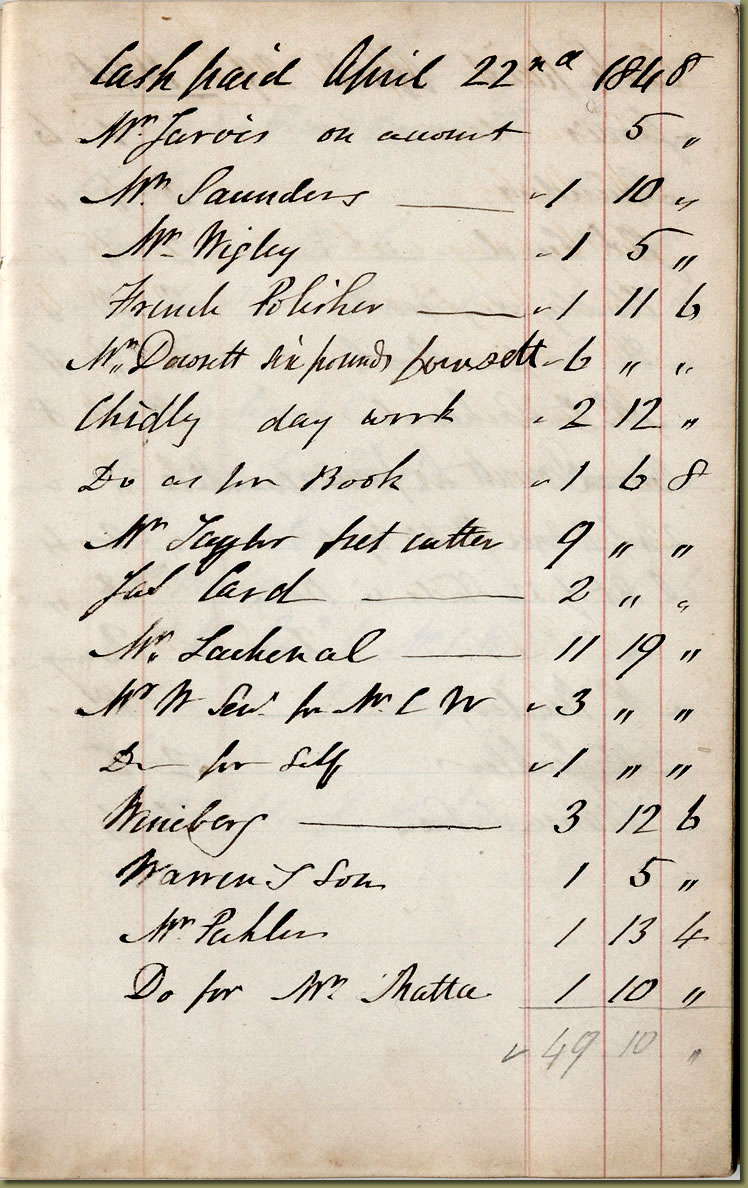 Cash paid April 22nd 1848
Mr Jarvis on account 5 "
Mr Saunders — 1 10 "
Mr Wigley 1 5 "
French Polisher — 1 11 6
Mr Dowsett six pounds 6 " "
Chidly day work 2 12 "
Do as per Book 1 6 8
Mr Taylor fret cutter 9 " "
Jas Card — 2 " "
Mr Lachenal — 11 19 "
Mr W for Mr C W 3 " "
Do for Self 1 " "
Wineberg — 3 12 6
Warren & Son 1 5 "
Mr Pahler 1 13 4
Do for Mr Matta 1 10 "
49 10 "